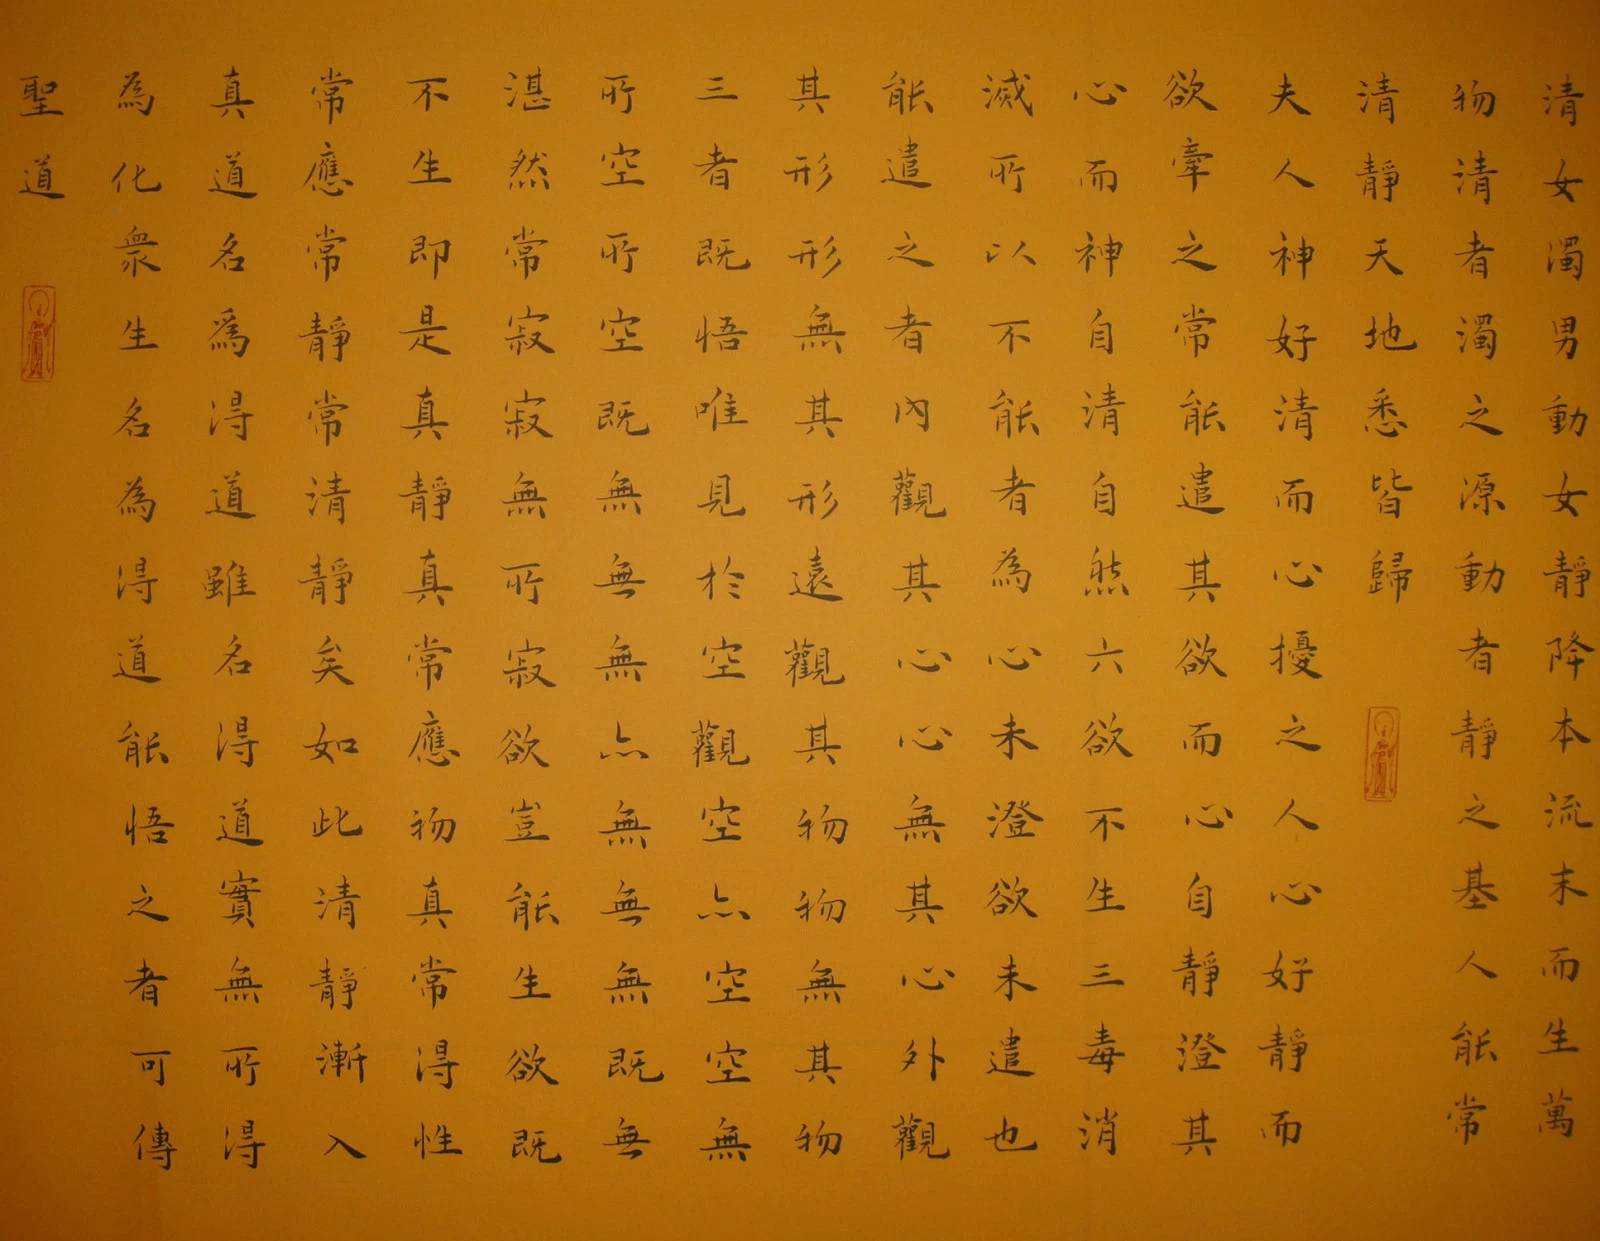 清女濁男動女靜降本流末而生萬
物清者濁之源動者靜之基人能常
清靜天地悉皆歸
夫人神好清而心擾之人心好靜而
欲牽之常能遣其欲而心自靜澄其
心而神自清自然六欲不生三毒消
滅所以不能者為心未澄欲未遣也
能遣之者內觀其心心無其心外觀
其形形無其形遠觀其物物無其物
三者既悟唯見於空觀空亦空空無
所空所空既無無無亦無無無既無
湛然常寂寂無所寂欲豈能生欲既
不生即是真靜真常應物真常得性
常應常靜常清靜矣如此清靜漸入
真道名爲得道雖名得道實無所得
為化衆生名為得道能悟之者可傳
聖道